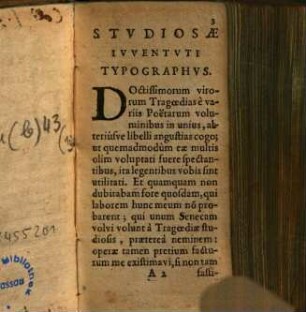 3
STVDIOSÆ
IVVENTVTI
TYPOGRAPHVS.
DOctissimorum viro
rum Tragœdias è va
riis Poëtarum volu
minibus in unius, al
teriúsve libelli angustias cogo;
ut quemadmodùm eæ multis
olim voluptati fuere spectan
tibus, ita legentibus vobis sint
utilitati. Et quamquam non
dubitabam fore quosdam, qui
laborem hunc meum nõ pro
barent; qui unum Senecam
volvi volunt à Tragœdiæ stu
diosis, prætereà neminem:
operæ tamen pretium factu
rum me existimavi, si non tam
A 2 fasti-
(b) 43
455201
Bibliothek